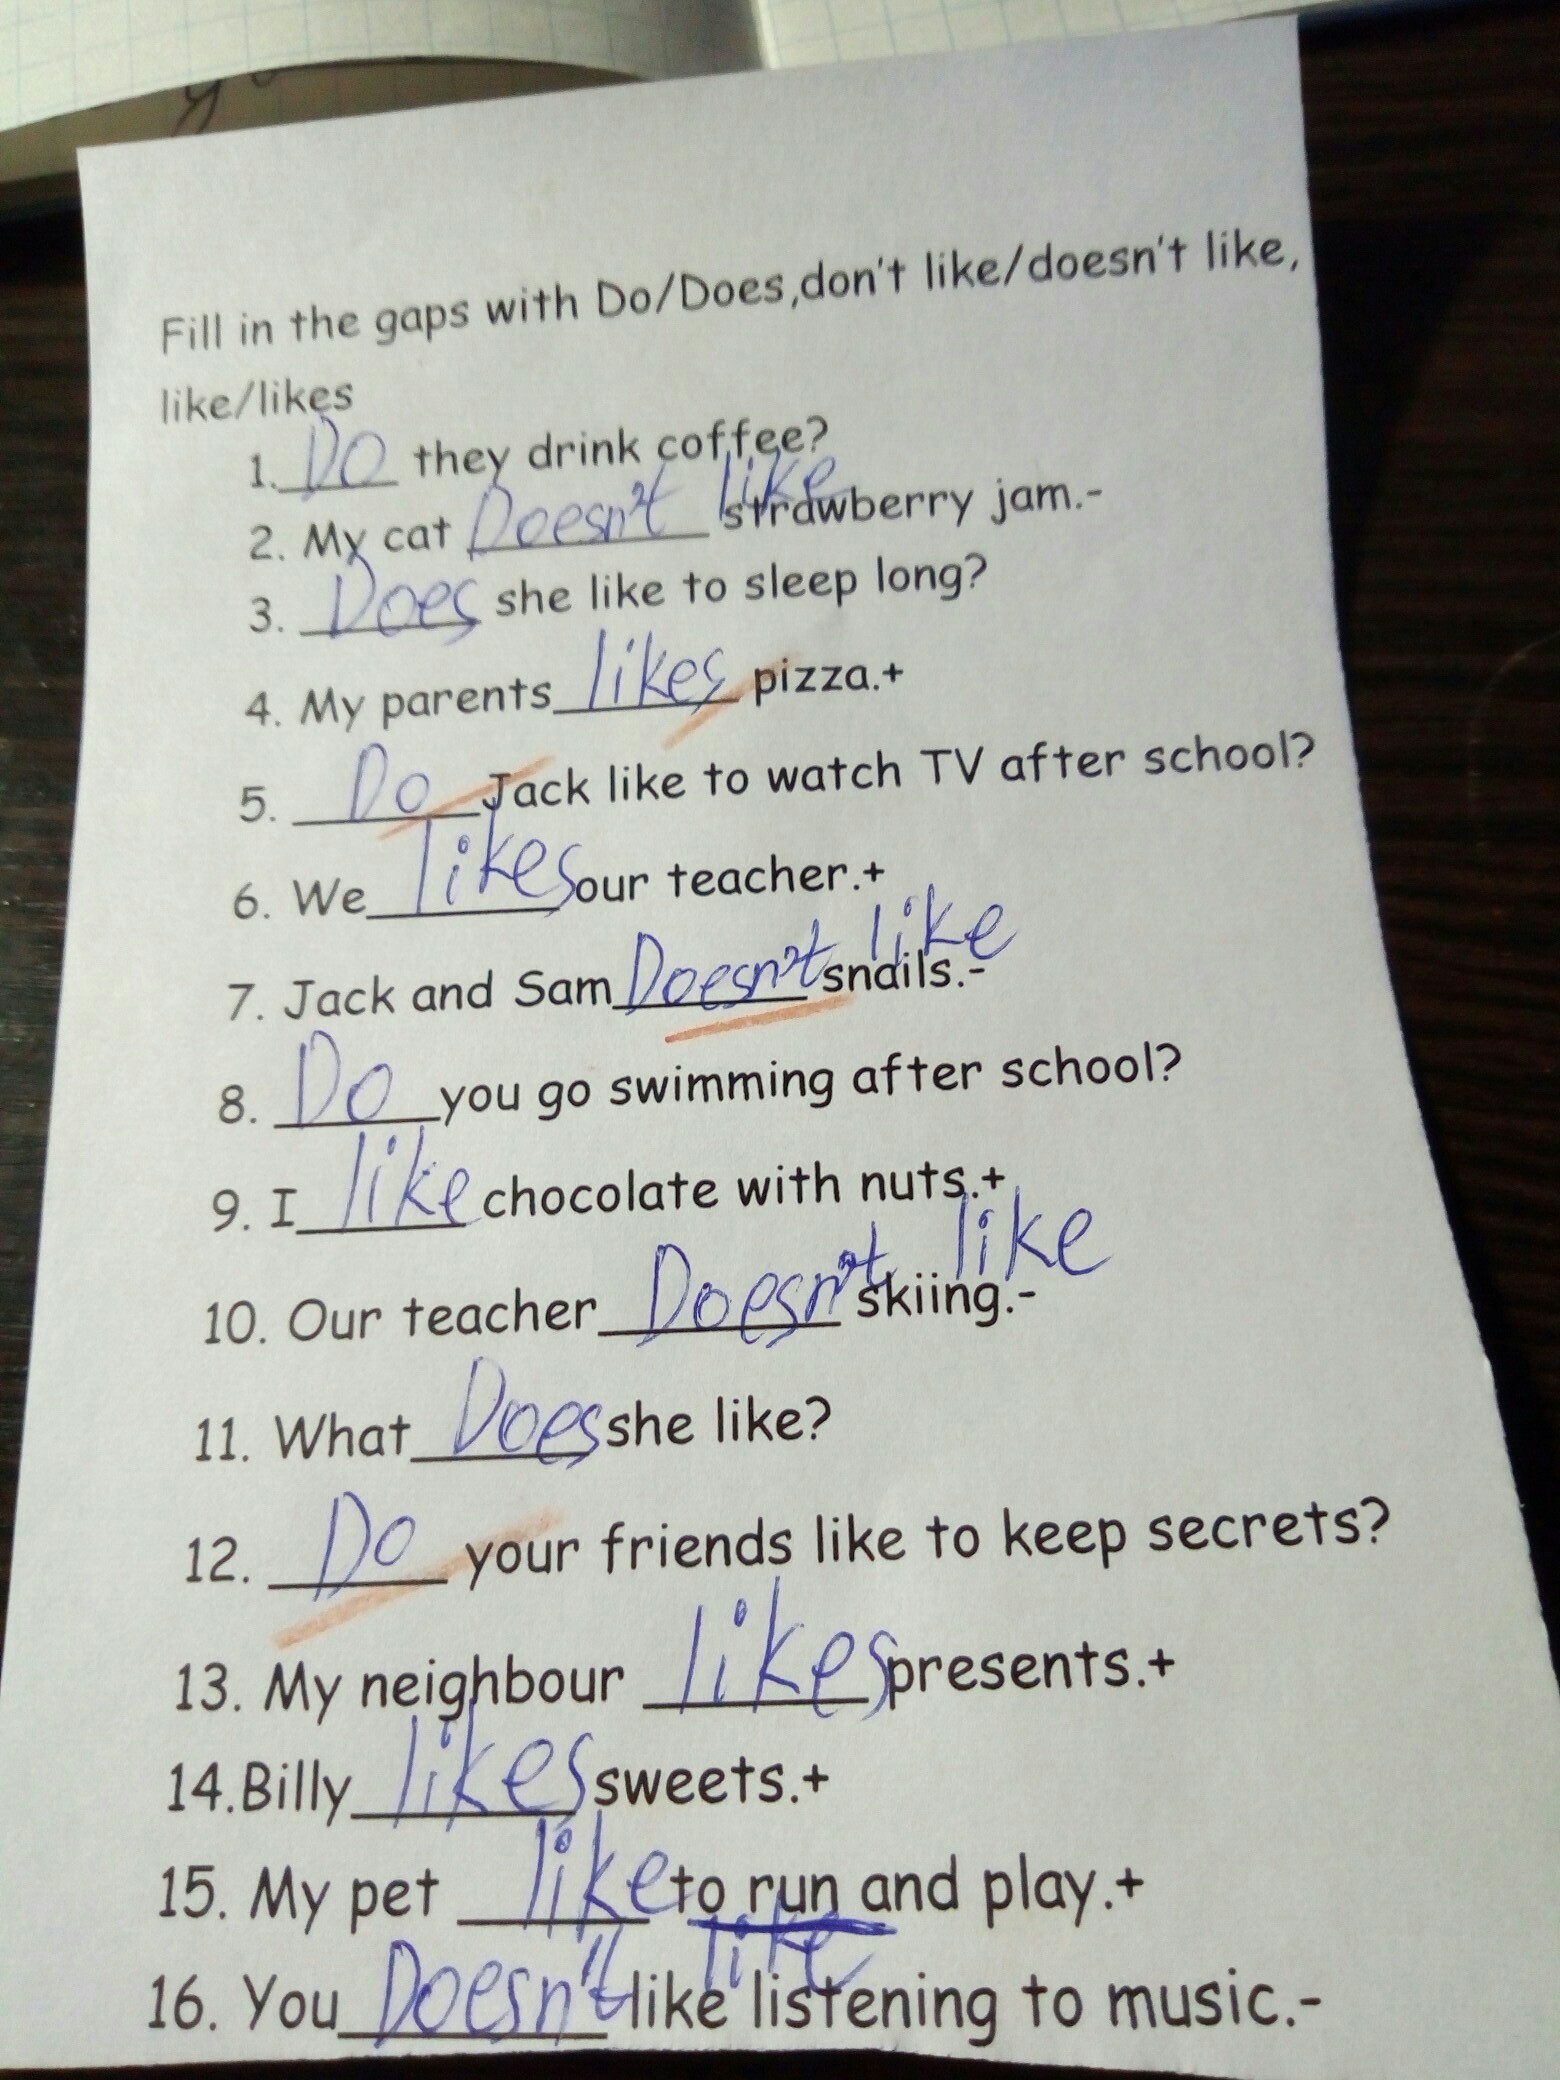 Fill in the gaps with Do/Does,don't like/doesn't like,
like/likes
1. Do they drink coffee?
2. My cat Doesn't like strawberry jam.-
3. Does she like to sleep long?
4. My parents likes pizza.+
5. Do Jack like to watch TV after school?
6. We likes our teacher.+
7. Jack and Sam Doesn't like snails.-
8. Do you go swimming after school?
9. I like chocolate with nuts.+
10. Our teacher Doesn't like skiing.-
11. What Does she like?
12. Do your friends like to keep secrets?
13. My neighbour likes presents.+
14.Billy likes sweets.+
15. My pet like to run and play.+
16. You Doesn't like like listening to music.-